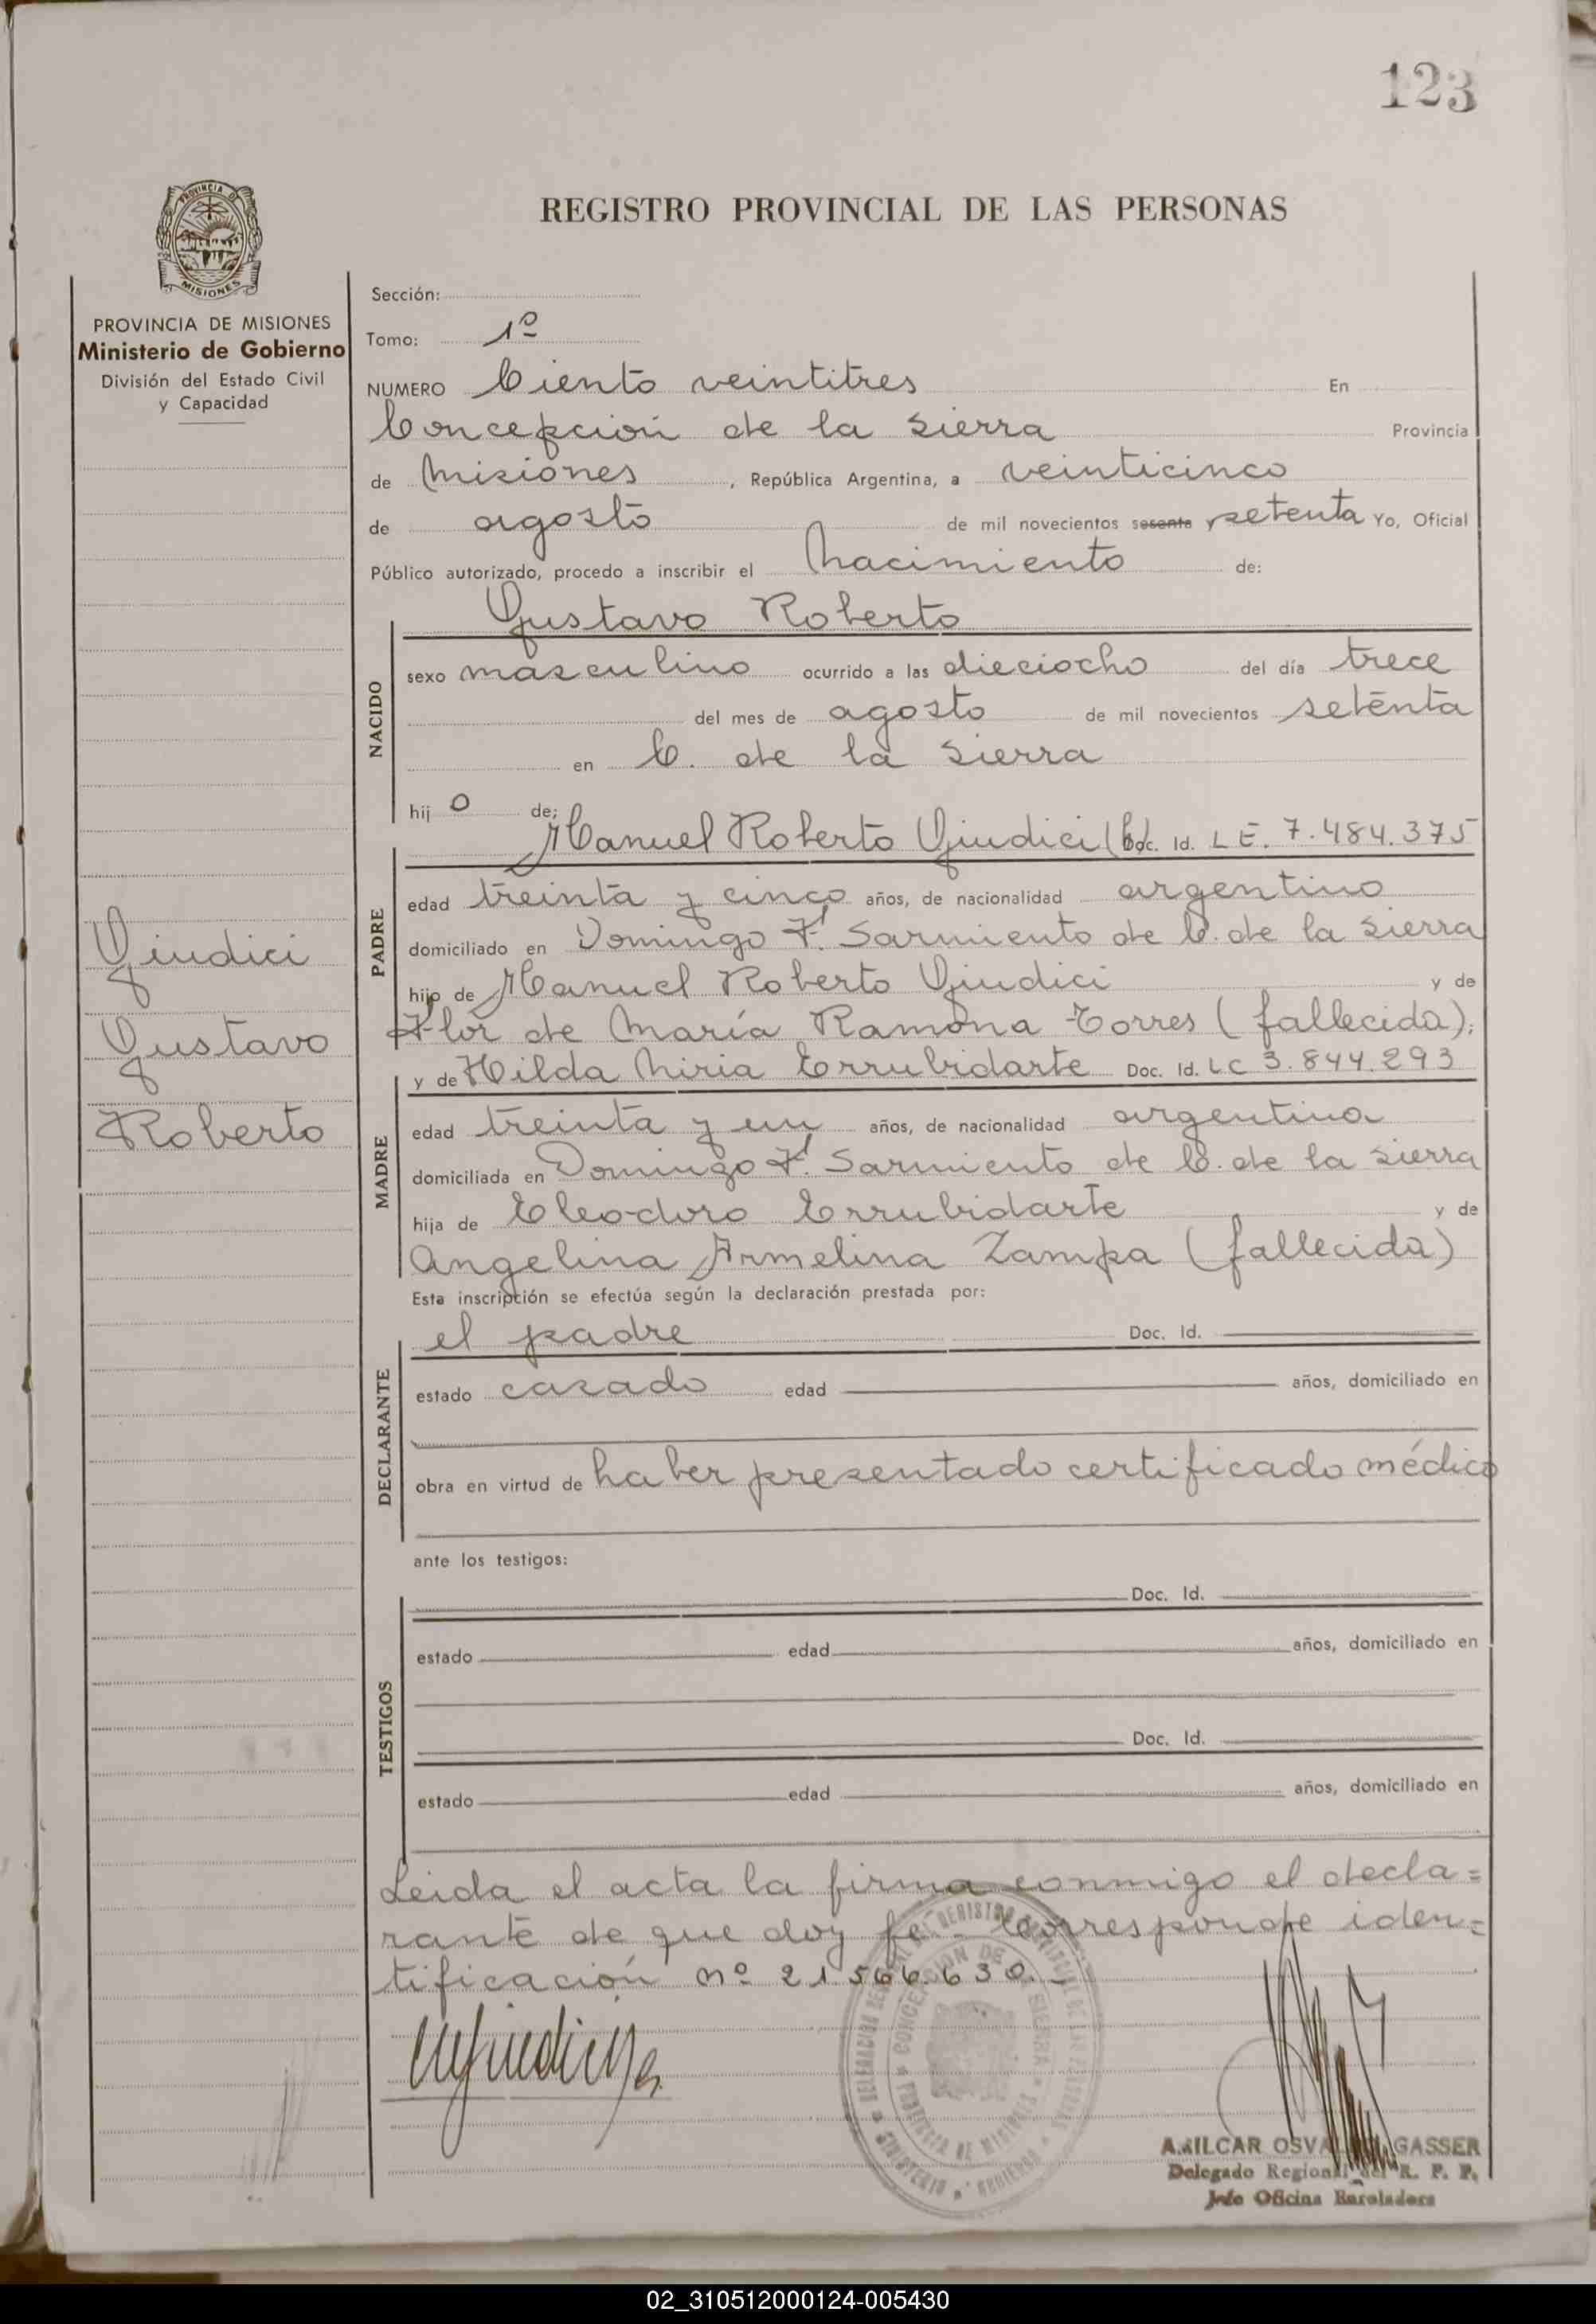 123
PROVINCIA DE
MISIONES
REGISTRO PROVINCIAL DE LAS PERSONAS
PROVINCIA DE MISIONES
Ministerio de Gobierno
División del Estado Civil
y Capacidad
Giudici
Gustavo
Roberto
Sección:
Tomo: 1º
NUMERO Ciento veintitres En
Concepción de la Sierra Provincia
de Misiones, República Argentina, a veinticinco
de agosto de mil novecientos sesenta y setenta Yo, Oficial
Público autorizado, procedo a inscribir el Nacimiento de:
Gustavo Roberto
NACIDO
sexo masculino ocurrido a las dieciocho del día trece
del mes de agosto de mil novecientos setenta
en C. de la Sierra
hij o de:
Manuel Roberto Giudici (h) Doc. Id. L E. 7.484.375
PADRE
edad treinta y cinco años, de nacionalidad argentino
domiciliado en Domingo F. Sarmiento de C. de la Sierra
hijo de Manuel Roberto Giudici y de
Flor de María Ramona Torres (fallecida);
y de Hilda Niria Errubidarte Doc. Id. L C 3.844.293
MADRE
edad treinta y un años, de nacionalidad argentina
domiciliada en Domingo F. Sarmiento de C. de la Sierra
hija de Eleodoro Errubidarte y de
Angelina Armelina Zampa (fallecida)
Esta inscripción se efectúa según la declaración prestada por:
el padre Doc. Id.
DECLARANTE
estado casado edad años, domiciliado en
obra en virtud de haber presentado certificado médico
ante los testigos:
TESTIGOS
Doc. Id.
estado edad años, domiciliado en
Doc. Id.
estado edad años, domiciliado en
Leida el acta la firma conmigo el decla=
rante de que doy fe.- Corresponde iden=
tificación nº 21.566.630.-
CONCEPCION DE LA SIERRA
PROVINCIA DE MISIONES
AMILCAR OSVALDO GASSER
Delegado Regional del R. P. P.
Jefe Oficina Enroladora
02_310512000124-005430